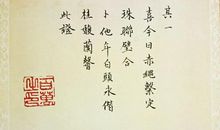 其一
喜今日赤繩繫定
珠聯璧合
卜他年白頭永偕
桂馥蘭馨
此證